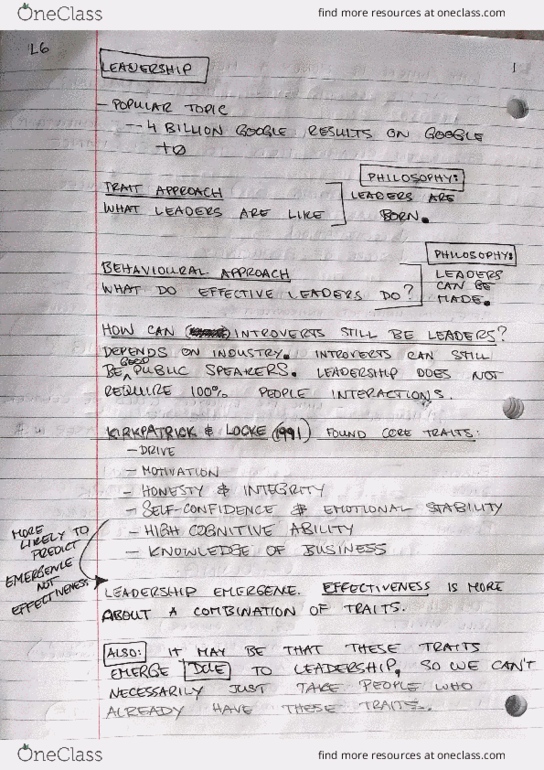 OneClass
find more resources at oneclass.com
L6
1
LEADERSHIP
- POPULAR TOPIC
-- 4 BILLION GOOGLE RESULTS ON GOOGLE
PHILOSOPHY:
TRAIT APPROACH
LEADERS ARE
WHAT LEADERS ARE LIKE
BORN.
PHILOSOPHY:
BEHAVIOURAL APPROACH
LEADERS
WHAT DO EFFECTIVE LEADERS DO?
CAN BE
MADE.
HOW CAN INTROVERTS STILL BE LEADERS?
DEPENDS ON INDUSTRY. INTROVERTS CAN STILL
BE GOOD PUBLIC SPEAKERS. LEADERSHIP DOES NOT
REQUIRE 100% PEOPLE INTERACTIONS.
KIRKPATRICK & LOCKE (1991) FOUND CORE TRAITS:
- DRIVE
- MOTIVATION
- HONESTY & INTEGRITY
- SELF-CONFIDENCE & EMOTIONAL STABILITY
- HIGH COGNITIVE ABILITY
- KNOWLEDGE OF BUSINESS
MORE
LIKELY TO
PREDICT
EMERGENCE
NOT
EFFECTIVENESS
LEADERSHIP EMERGENE. EFFECTIVENESS IS MORE
ABOUT A COMBINATION OF TRAITS.
ALSO: IT MAY BE THAT THESE TRAITS
EMERGE DUE TO LEADERSHIP, SO WE CAN'T
NECESSARILY JUST TAKE PEOPLE WHO
ALREADY HAVE THESE TRAITS.
OneClass
find more resources at oneclass.com